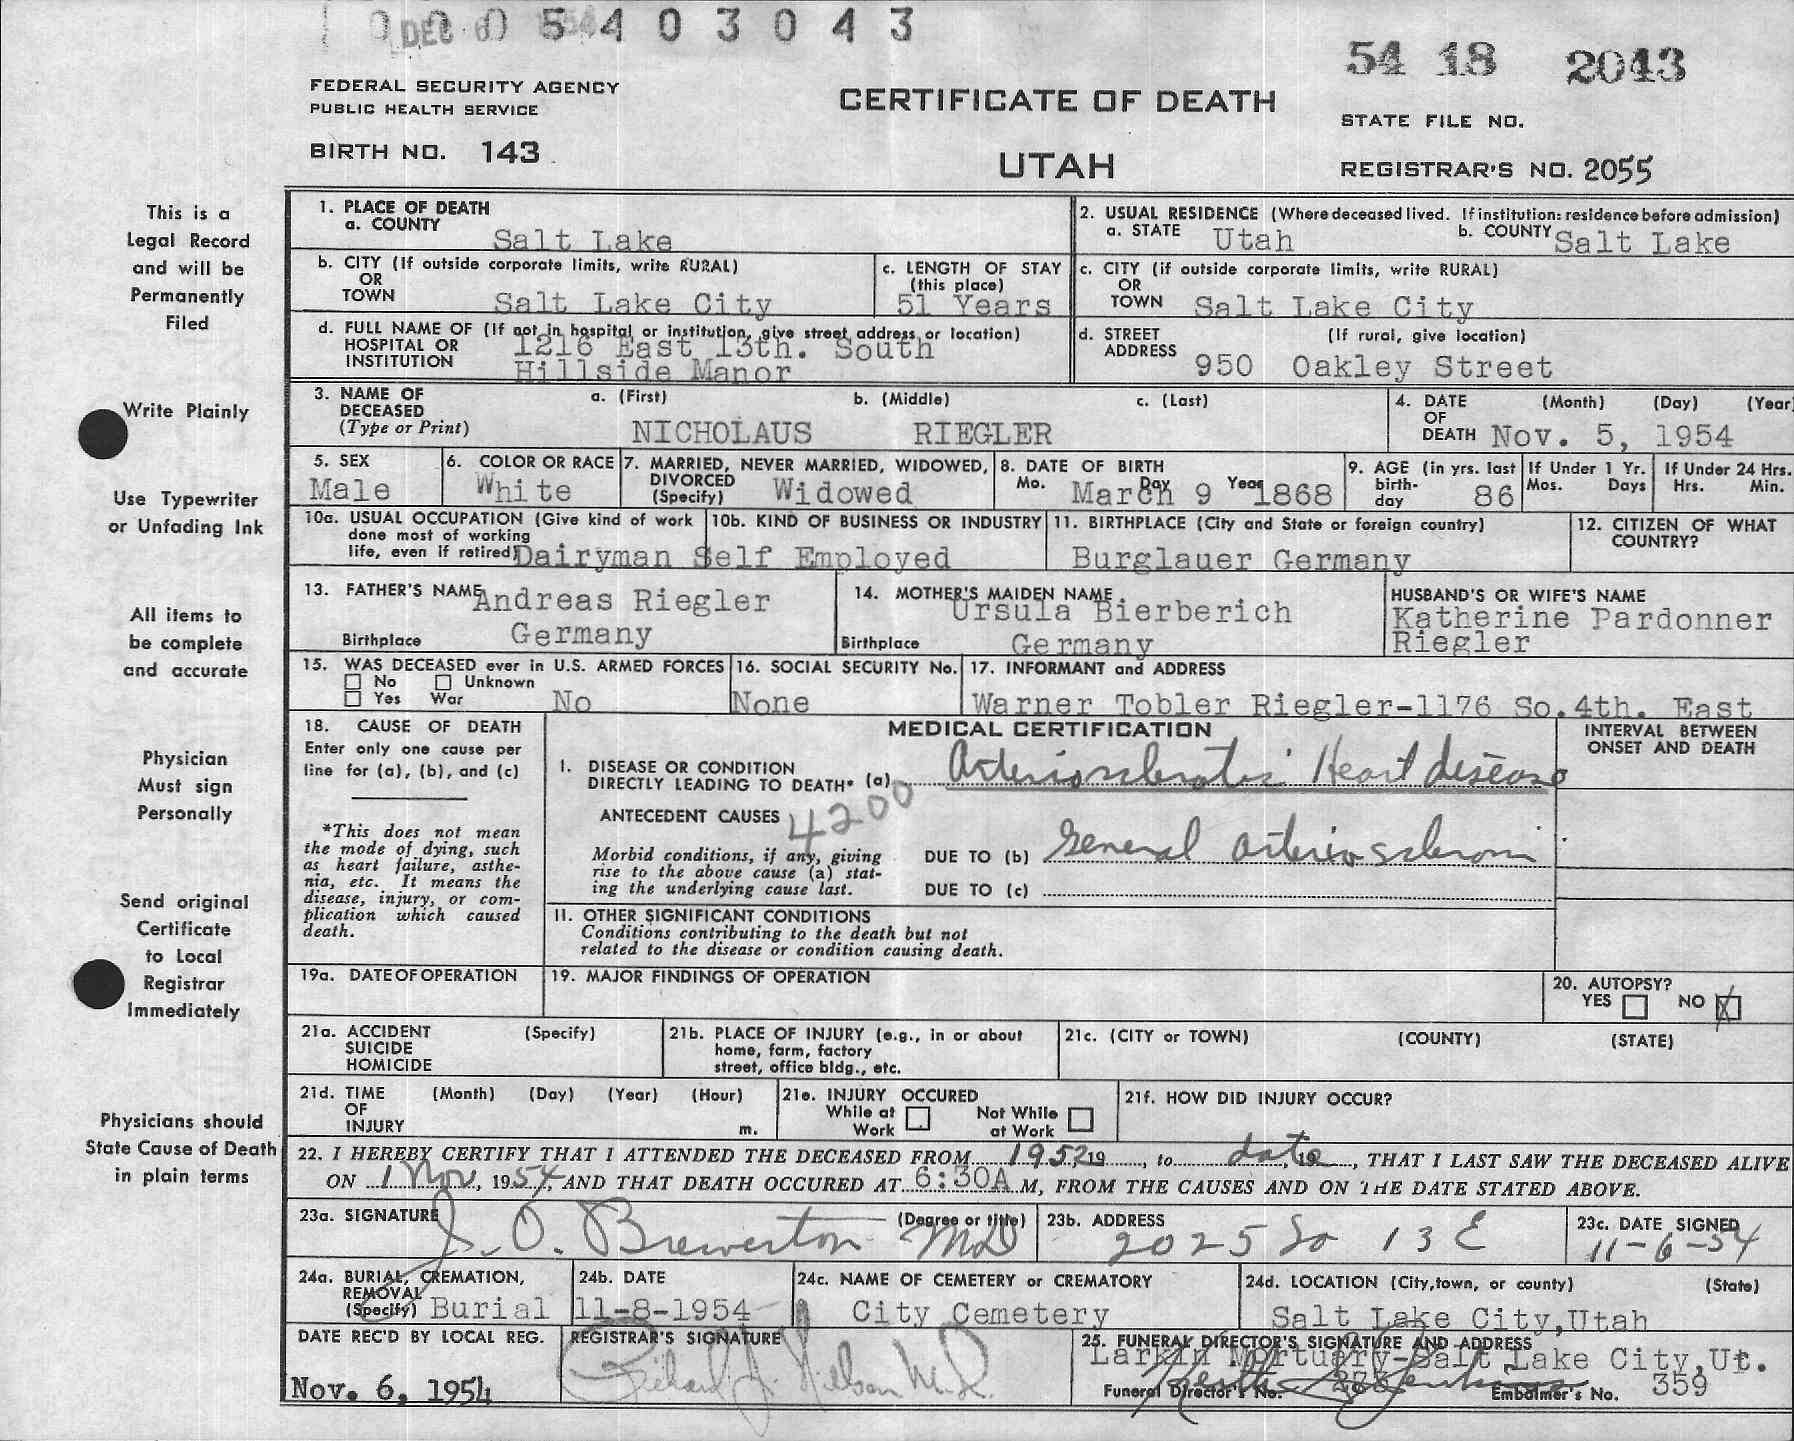 0005403043
DEC 6 1954
54 18 2043
FEDERAL SECURITY AGENCY
PUBLIC HEALTH SERVICE
CERTIFICATE OF DEATH
STATE FILE NO.
BIRTH NO. 143
UTAH
REGISTRAR'S NO. 2055
This is a
Legal Record
and will be
Permanently
Filed
Write Plainly
Use Typewriter
or Unfading Ink
All items to
be complete
and accurate
Physician
Must sign
Personally
Send original
Certificate
to Local
Registrar
Immediately
Physicians should
State Cause of Death
in plain terms
1. PLACE OF DEATH
a. COUNTY Salt Lake
2. USUAL RESIDENCE (Where deceased lived. If institution: residence before admission)
a. STATE Utah b. COUNTY Salt Lake
b. CITY (If outside corporate limits, write RURAL)
OR
TOWN Salt Lake City
c. LENGTH OF STAY
(this place)
51 Years
c. CITY (if outside corporate limits, write RURAL)
OR
TOWN Salt Lake City
d. FULL NAME OF (If not in hospital or institution, give street address or location)
HOSPITAL OR
INSTITUTION
1216 East 13th. South
Hillside Manor
d. STREET (If rural, give location)
ADDRESS 950 Oakley Street
3. NAME OF
DECEASED
(Type or Print)
a. (First) b. (Middle) c. (Last)
NICHOLAUS RIEGLER
4. DATE (Month) (Day) (Year)
OF
DEATH Nov. 5, 1954
5. SEX
Male
6. COLOR OR RACE
White
7. MARRIED, NEVER MARRIED, WIDOWED,
DIVORCED
(Specify) Widowed
8. DATE OF BIRTH
Mo. Day Year
March 9 1868
9. AGE (in yrs. last
birth-
day 86
If Under 1 Yr.
Mos. Days
If Under 24 Hrs.
Hrs. Min.
10a. USUAL OCCUPATION (Give kind of work
done most of working
life, even if retired) Dairyman
10b. KIND OF BUSINESS OR INDUSTRY
Self Employed
11. BIRTHPLACE (City and State or foreign country)
Burglauer Germany
12. CITIZEN OF WHAT
COUNTRY?
13. FATHER'S NAME Andreas Riegler
Birthplace Germany
14. MOTHER'S MAIDEN NAME
Ursula Bierberich
Birthplace Germany
HUSBAND'S OR WIFE'S NAME
Katherine Pardonner
Riegler
15. WAS DECEASED ever in U.S. ARMED FORCES
No Unknown
Yes War No
16. SOCIAL SECURITY No.
None
17. INFORMANT and ADDRESS
Warner Tobler Riegler-1176 So.4th. East
18. CAUSE OF DEATH
Enter only one cause per
line for (a), (b), and (c)
*This does not mean
the mode of dying, such
as heart failure, asthe-
nia, etc. It means the
disease, injury, or com-
plication which caused
death.
MEDICAL CERTIFICATION
INTERVAL BETWEEN
ONSET AND DEATH
I. DISEASE OR CONDITION
DIRECTLY LEADING TO DEATH* (a) Arteriosclerotic Heart disease
ANTECEDENT CAUSES 4200
Morbid conditions, if any, giving
rise to the above cause (a) stat-
ing the underlying cause last.
DUE TO (b) General arteriosclerosis
DUE TO (c)
II. OTHER SIGNIFICANT CONDITIONS
Conditions contributing to the death but not
related to the disease or condition causing death.
19a. DATE OF OPERATION
19. MAJOR FINDINGS OF OPERATION
20. AUTOPSY?
YES NO X
21a. ACCIDENT (Specify)
SUICIDE
HOMICIDE
21b. PLACE OF INJURY (e.g., in or about
home, farm, factory
street, office bldg., etc.
21c. (CITY or TOWN) (COUNTY) (STATE)
21d. TIME (Month) (Day) (Year) (Hour)
OF
INJURY m.
21e. INJURY OCCURED
While at Work Not While at Work
21f. HOW DID INJURY OCCUR?
22. I HEREBY CERTIFY THAT I ATTENDED THE DECEASED FROM 1952 19, to date, 19, THAT I LAST SAW THE DECEASED ALIVE
ON 1 Nov, 1954, AND THAT DEATH OCCURED AT 6:30A M, FROM THE CAUSES AND ON THE DATE STATED ABOVE.
23a. SIGNATURE (Degree or title)
S. O. Brewerton MD
23b. ADDRESS
2025 So 13 E
23c. DATE SIGNED
11-6-54
24a. BURIAL, CREMATION,
REMOVAL
(Specify) Burial
24b. DATE
11-8-1954
24c. NAME OF CEMETERY or CREMATORY
City Cemetery
24d. LOCATION (City, town, or county) (State)
Salt Lake City, Utah
DATE REC'D BY LOCAL REG.
Nov. 6, 1954
REGISTRAR'S SIGNATURE
Richard J. Nelson M.D.
25. FUNERAL DIRECTOR'S SIGNATURE AND ADDRESS
Larkin Mortuary-Salt Lake City, Ut.
Funeral Director's No. Embalmer's No. 359